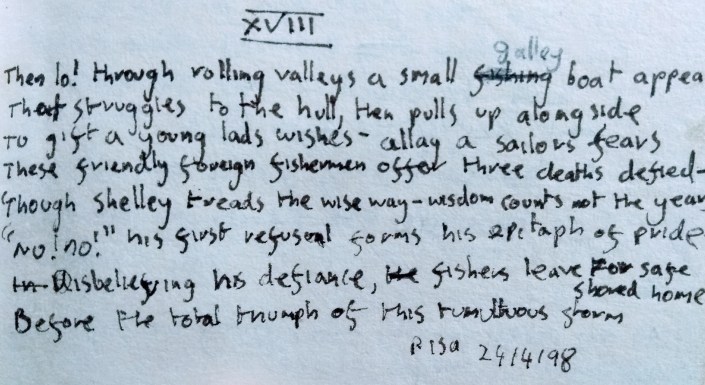 XVIII
Then lo! through rolling valleys a small fishing galley boat appea
That struggles to the hull, then pulls up alongside
To gift a young lads wishes - allay a sailors fears
These friendly foreign fishermen offer three deaths defied-
Though Shelley treads the wise way - wisdom counts not the year
"No! no!" his first refusal forms his epitaph of pride
In Disbelieving his defiance, the fishers leave for safe shored home
Before the total triumph of this tumultuous storm
Pisa 24/4/98